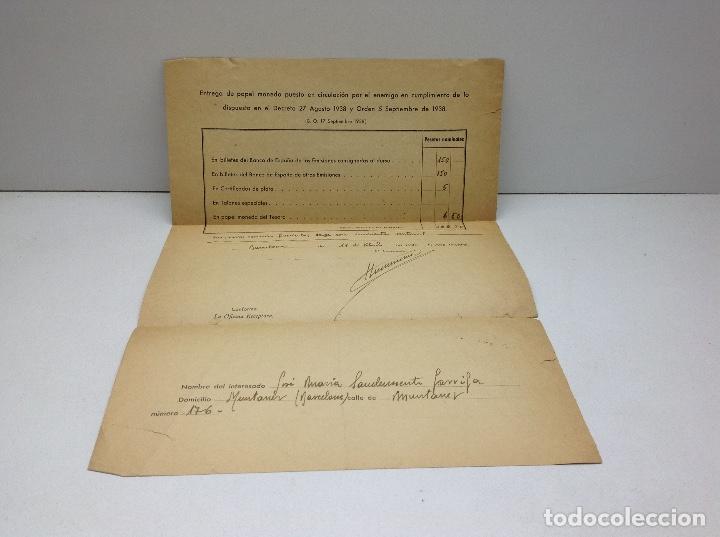 Entrega de papel moneda puesto en circulación por el enemigo en cumplimiento de lo
dispuesto en el Decreto 27 Agosto 1938 y Orden 5 Septiembre de 1938.
(B. O. 17 Septiembre 1938)
Pesetas nominales
En billetes del Banco de España de las Emisiones consignadas al dorso 150
En billetes del Banco de España de otras Emisiones 150
En Certificados de plata 5
En Talones especiales
En papel moneda del Tesoro 6 50
Barcelona de
Conforme
La Oficina Receptora,
Nombre del interesado José María Garriga
Domicilio Muntaner (Barcelona) calle de Muntaner
número 176 -
todocoleccion.net